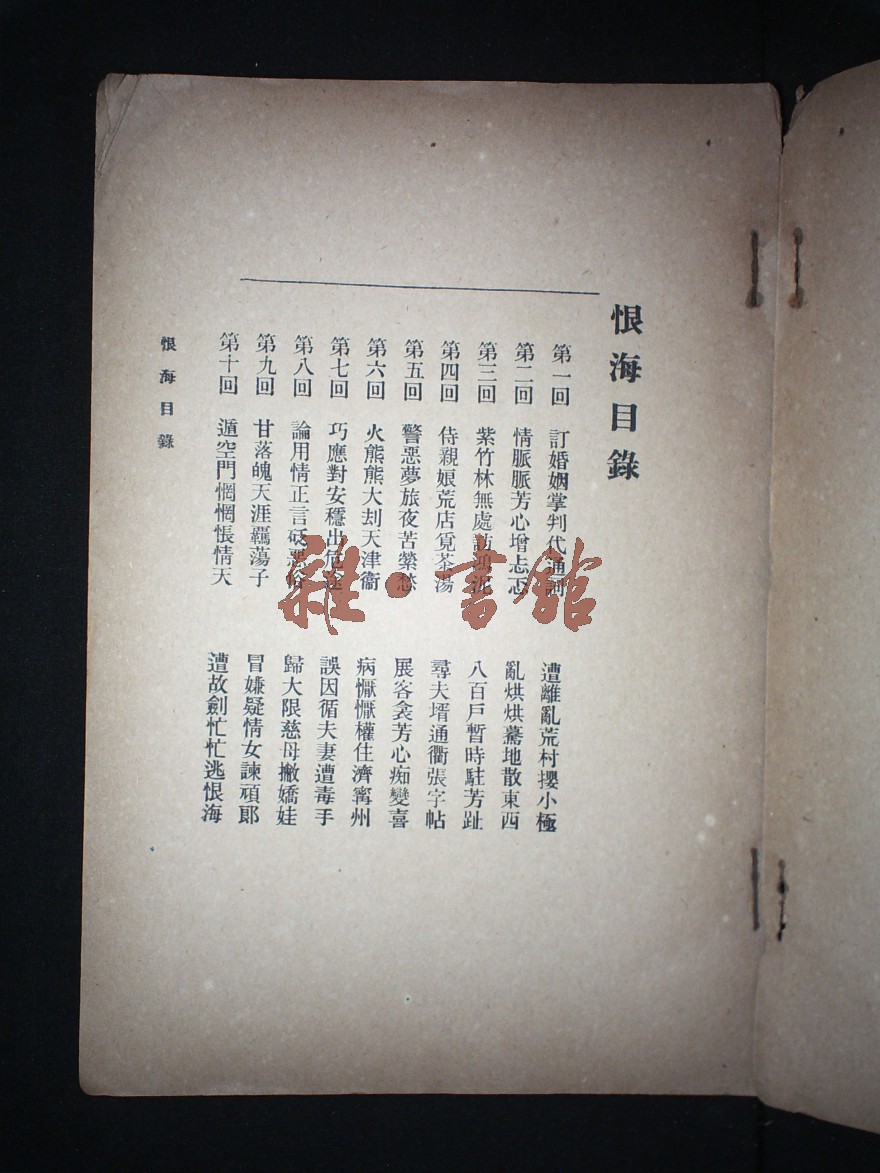 恨海目錄
第一回 訂婚姻掌判代通詞 遭離亂荒村攖小極
第二回 情脈脈芳心增忐忑 亂烘烘驀地散東西
第三回 紫竹林無處訪鴻泥 八百戶暫時駐芳趾
第四回 侍親娘荒店覓茶湯 尋夫壻通衢張字帖
第五回 警惡夢旅夜苦縈愁 展客衾芳心痴變喜
第六回 火熊熊大刦天津衞 病懨懨權住濟甯州
第七回 巧應對安穩出危途 誤因循夫妻遭毒手
第八回 論用情正言砭惡俗 歸大限慈母撇嬌娃
第九回 甘落魄天涯羈蕩子 冒嫌疑情女諫頑郎
第十回 遁空門惘惘悵情天 遭故劍忙忙逃恨海
恨海目錄
雜·書館